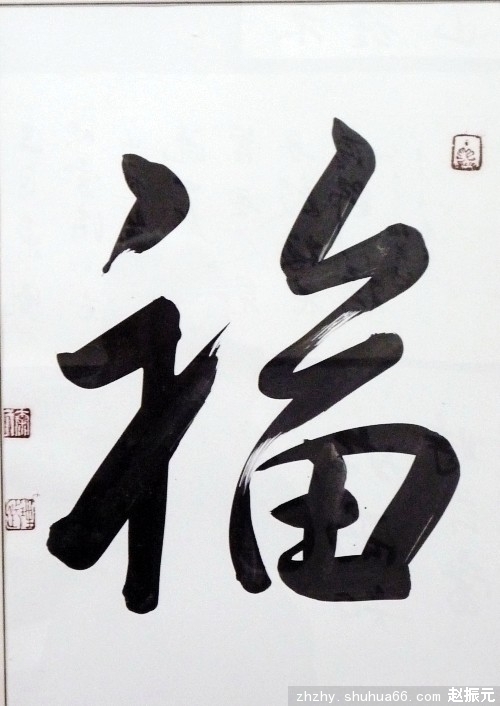 福
zhzhy.shuhua66.com 赵振元